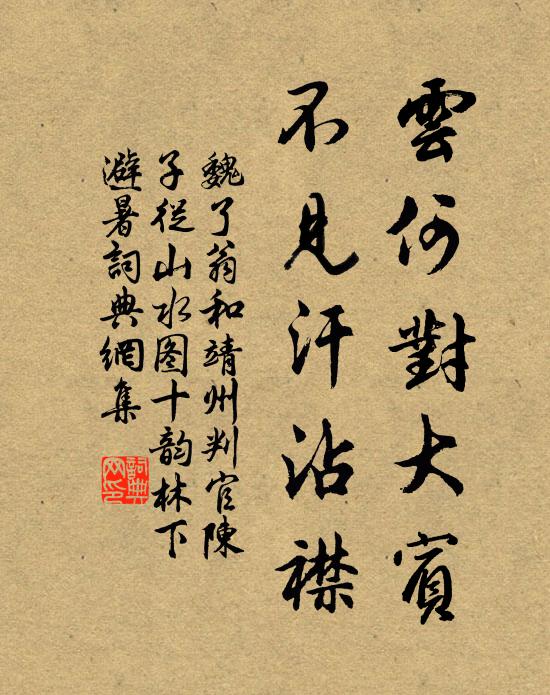 雲何對大賓
不見汗沾襟
魏了翁和靖州判官陳
子從山水图十韵林下
避暑詞典網集
詞典网印